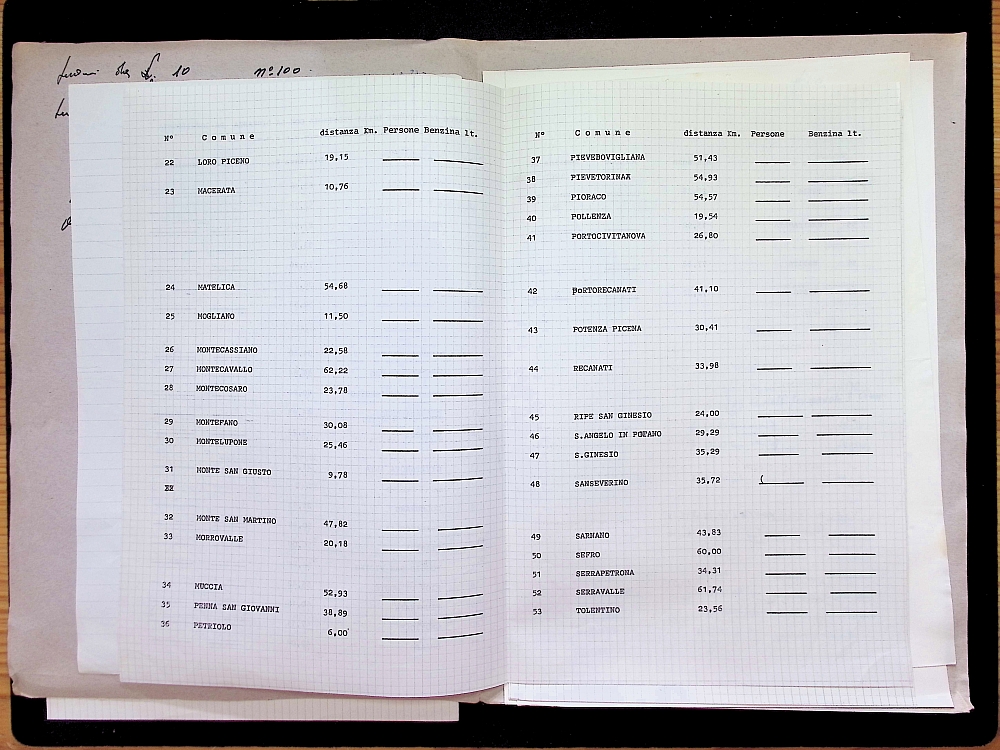 £. 10 nº 100
Nº Comune distanza Km. Persone Benzina lt.
22 LORO PICENO 19,15
23 MACERATA 10,76
24 MATELICA 54,68
25 MOGLIANO 11,50
26 MONTECASSIANO 22,58
27 MONTECAVALLO 62,22
28 MONTECOSARO 23,78
29 MONTEFANO 30,08
30 MONTELUPONE 25,46
31 MONTE SAN GIUSTO 9,78
32 MONTE SAN MARTINO 47,82
33 MORROVALLE 20,18
34 MUCCIA 52,93
35 PENNA SAN GIOVANNI 38,89
36 PETRIOLO 6,00
Nº Comune distanza Km. Persone Benzina lt.
37 PIEVEBOVIGLIANA 51,43
38 PIEVETORINA 54,93
39 PIORACO 54,57
40 POLLENZA 19,54
41 PORTOCIVITANOVA 26,80
42 PORTORECANATI 41,10
43 POTENZA PICENA 30,41
44 RECANATI 33,98
45 RIPE SAN GINESIO 24,00
46 S.ANGELO IN 29,29
47 S.GINESIO 35,29
48 SANSEVERINO 35,72
49 SARNANO 43,83
50 SEFRO 60,00
51 SERRAPETRONA 34,31
52 SERRAVALLE 61,74
53 TOLENTINO 23,56